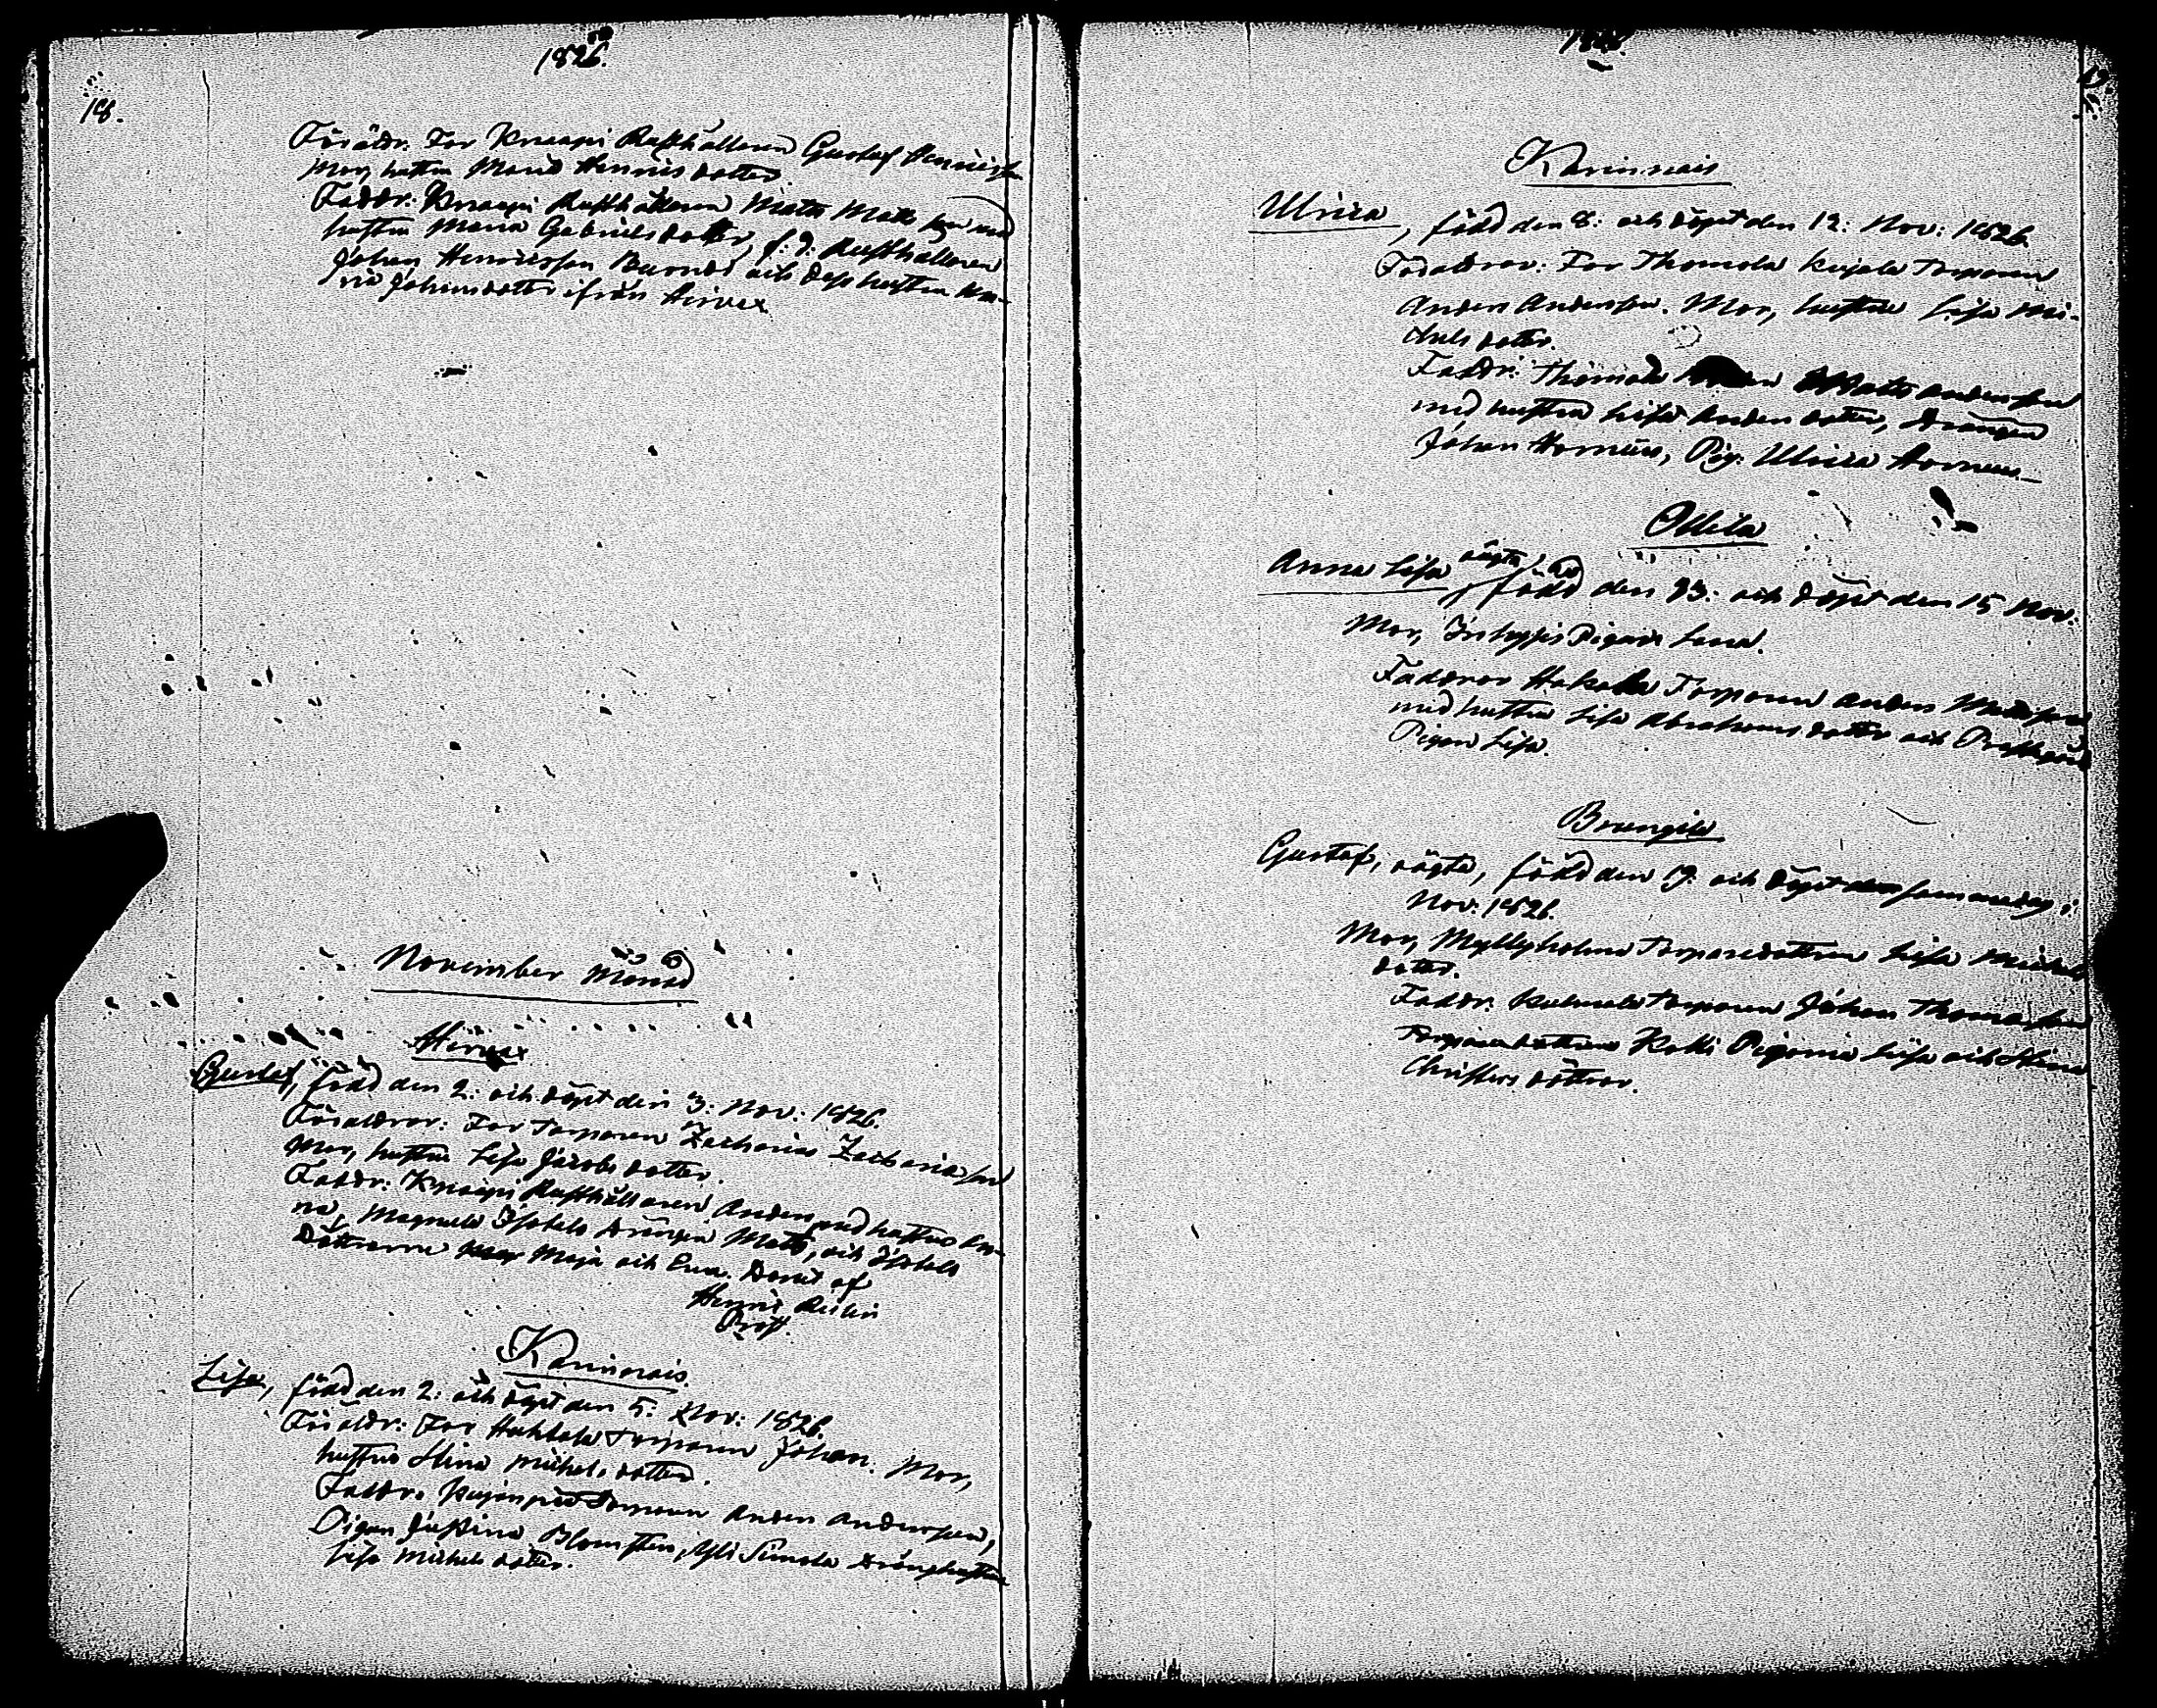 1826.
18.
Föräldr: Far Knaapi Rusthållaren Gustaf Henricsson
Mor, hustru Maria Henricsdotter.
Faddr: Knaapi Rusthållaren Matts Mattsson med
hustru Maria Gabrielsdotter, f: d: Rusthållaren
Johan Henricsson och dess hustru Ma-
ria Johansdotter ifrån Hirvax
November Månad
Hirvax
Gustaf, född den 2: och döpt den 3: Nov: 1826.
Föräldrar: Far Torparen Zacharias Zachariasson
Mor, hustru Lisa Jacobsdotter.
Faddr: Knaapi Rusthållaren Anders med hustru An-
na, Magnula Isotalo Drängen Matts, och Isotalo
Döttrarne Maja och Eva. Döpt af
Henric
Prost.
Karinais.
Lisa, född den 2: och döpt den 5: Nov: 1826.
Föräldr: Far Huhtala Torparen Johan. Mor,
hustru Stina Michelsdotter.
Faddr: Torparen Anders Andersson,
Pigan Justina Blomsten, Yli Simola Dränghustrun
Lisa Michelsdotter.
1826.
19.
Karinais
Ulrica, född den 8: och döpt den 12: Nov: 1826.
Föräldrar: Far Thomola Kujala Torparen
Anders Andersson. Mor, hustru Lisa Mi-
chelsdotter.
Faddr: Thomola Matts Andersson
med hustru Lisa Andersdotter, Drängen
Johan Horneus, Pig. Ulrica Horneus.
Ollila
Anna Lisa oägta, född den 13: och döpt den 15 Nov:
Mor, Inhyses Pigan Lena.
Faddrar Hakala Torparen Anders
med hustru Lisa Abrahamsdotter och Prestgårds
Pigan Lisa.
Brungila
Gustaf, oägta, född den 19: och döpt samma dag i
Nov: 1826.
Mor, Myllyholma Torparedottren Lisa Michels
dotter.
Faddr: Torparen Johan Thomasson
Torparedottren Pigorna Lisa och Stina
Christersdöttrar.